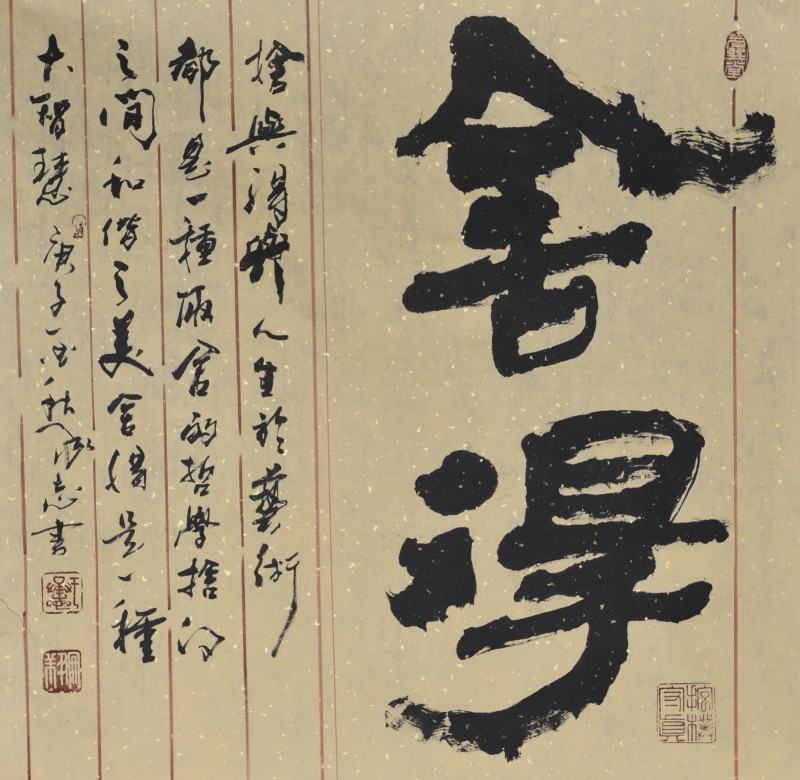 舍得
捨與得與人生於藝術
都是一種取舍的哲學捨得
之間和偕之美舍得是一種
大智慧 庚子 秋 志書
抱樸守真